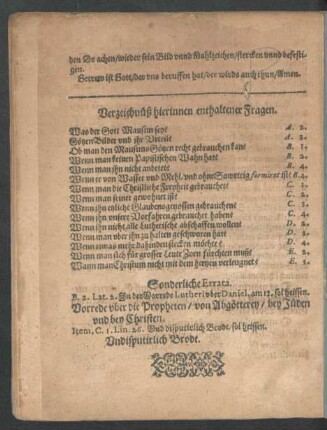 den Drachen/wieder sein Bild vnd Mahlzeichen/stercken vnnd befesti-
gen.
Getrew ist Gott/der vns beruffen hat/der wirds auch thun/Amen.
Verzeichnüß hierinnen enthaltener Fragen.
Was der Gott Mausim seye A. 2.
Götzen Bilder vnd ihr Vrteile A. 3.
Ob man den Mausims Götzen recht gebrauchen kan B. 1.
Wenn man keinen Papistischen Wahn hatt B. 2.
Wenn man ihn nicht anbetet B. 4.
Wenn er von Wasser vnd Mehl/vnd ohne Sawrteig formiret ist B. 4.
Wenn man die Christliche Freyheit gebrauchet C. 1.
Wenn man seiner gewohnet ist C. 2.
Wenn ihn etliche Glaubensgenossen gebrauchen C.
Wenn ihn vnsere Vorfahren gebrauchet haben C. 4.
Wenn ihn nicht alle Lutherische abschaffen wollen D. 2.
Wenn man vber ihn zu halten geschworen hat D. 3.
Wenn etwas mehr dahinden stecken möchte D. 4.
Wenn man sich für grosser Leute Zorn fürchten muß E. 2.
Wann man Christum nicht mit dem hertzen verleugnet E. 3.
Sonderliche Errata.
B. 2. Lat. 2. In der Vorrede Lutheri vber Daniel, am 12. sol heissen.
Vorrede vber die Propheten/von Abgötterey/bey Jüden
vnd bey Christen.
Item, C. 1. Lin. 26. Vnd disputierlich Brodt/sol heissen.
Vndisputirlich Brodt.